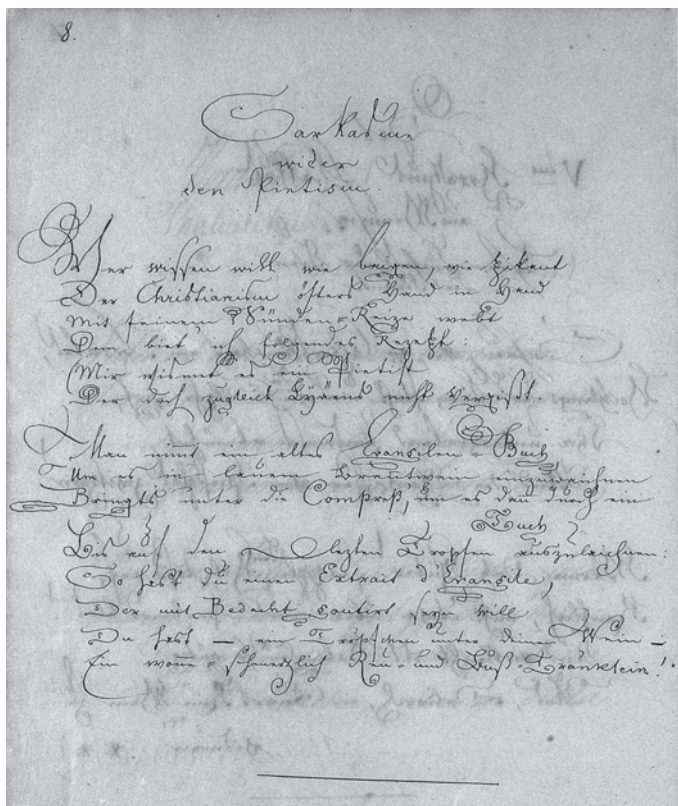 8.
Sarkasme
wider
den Pietism.
Wer wissen will wie beigen, wie
Der Christianism öfters Hand in Hand
Mit seinem Sünden-Reize webt
Dem biet ich folgendes Rezept:
(Mir wismet es ein Pietist
Der doch zugleich Lyäens nicht vergißt.
Man nimt ein altes Evangilen-Buch
Um es in lauem Brantwein einzuweichnen
Bringts unter die Compreß, um es dan durch ein
Tuch
Bis auf den lezten Tropfen auszuleichnen:
So hast du einen Extrait d'Evangile,
Der mit Bedacht goutirt seyn will
Du hast — ein Tröpfchen unter deinen Wein —
Ein wonne-schmerzlich Reu- und Buß-Tränklein!